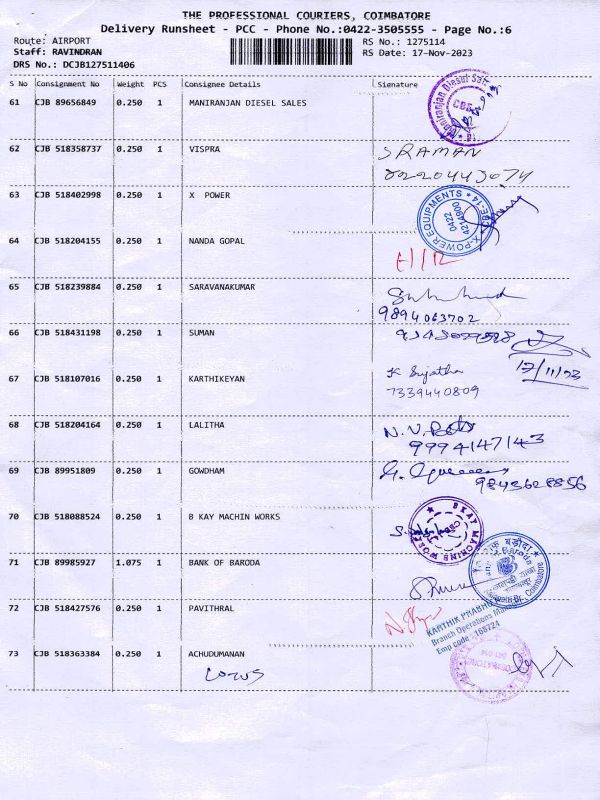 THE PROFESSIONAL COURIERS, COIMBATORE
Delivery Runsheet - PCC - Phone No.:0422-3505555 - Page No.:6
Route: AIRPORT
RS No.: 1275114
Staff: RAVINDRAN
RS Date: 17-Nov-2023
DRS No.: DCJB127511406
S No Consignment No Weight PCS Consignee Details Signature
61 CJB 89656849 0.250 1 MANIRANJAN DIESEL SALES
62 CJB 518358737 0.250 1 VISPRA SRAMAN
8220443674
63 CJB 518402998 0.250 1 X POWER
X-POWER EQUIPMENTS
0422
4214900
CBE-14
64 CJB 518204155 0.250 1 NANDA GOPAL
65 CJB 518239884 0.250 1 SARAVANAKUMAR
9894063702
66 CJB 518431198 0.250 1 SUMAN
17/11/23
67 CJB 518107016 0.250 1 KARTHIKEYAN K Sujatha
7339440809
68 CJB 518204164 0.250 1 LALITHA
9994147143
69 CJB 89951809 0.250 1 GOWDHAM
9843628856
70 CJB 518088524 0.250 1 B KAY MACHIN WORKS
71 CJB 89985927 1.075 1 BANK OF BARODA
72 CJB 518427576 0.250 1 PAVITHRAL
KARTHIK PRABHU
Branch Operations
Emp code 168724
73 CJB 518363384 0.250 1 ACHUDUMANAN
LOTUS